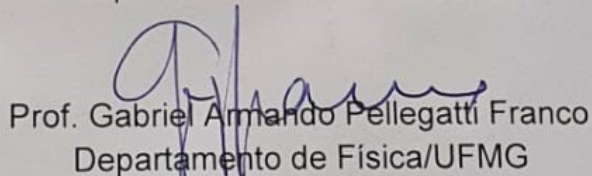 Prof. Gabriel Armando Pellegatti Franco
Departamento de Física/UFMG